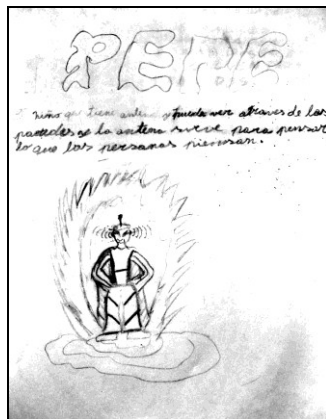 PEPE
niño que tiene antena y puede ver atraves de las
paredes la antena sirve para pensar
lo que las personas piensan.